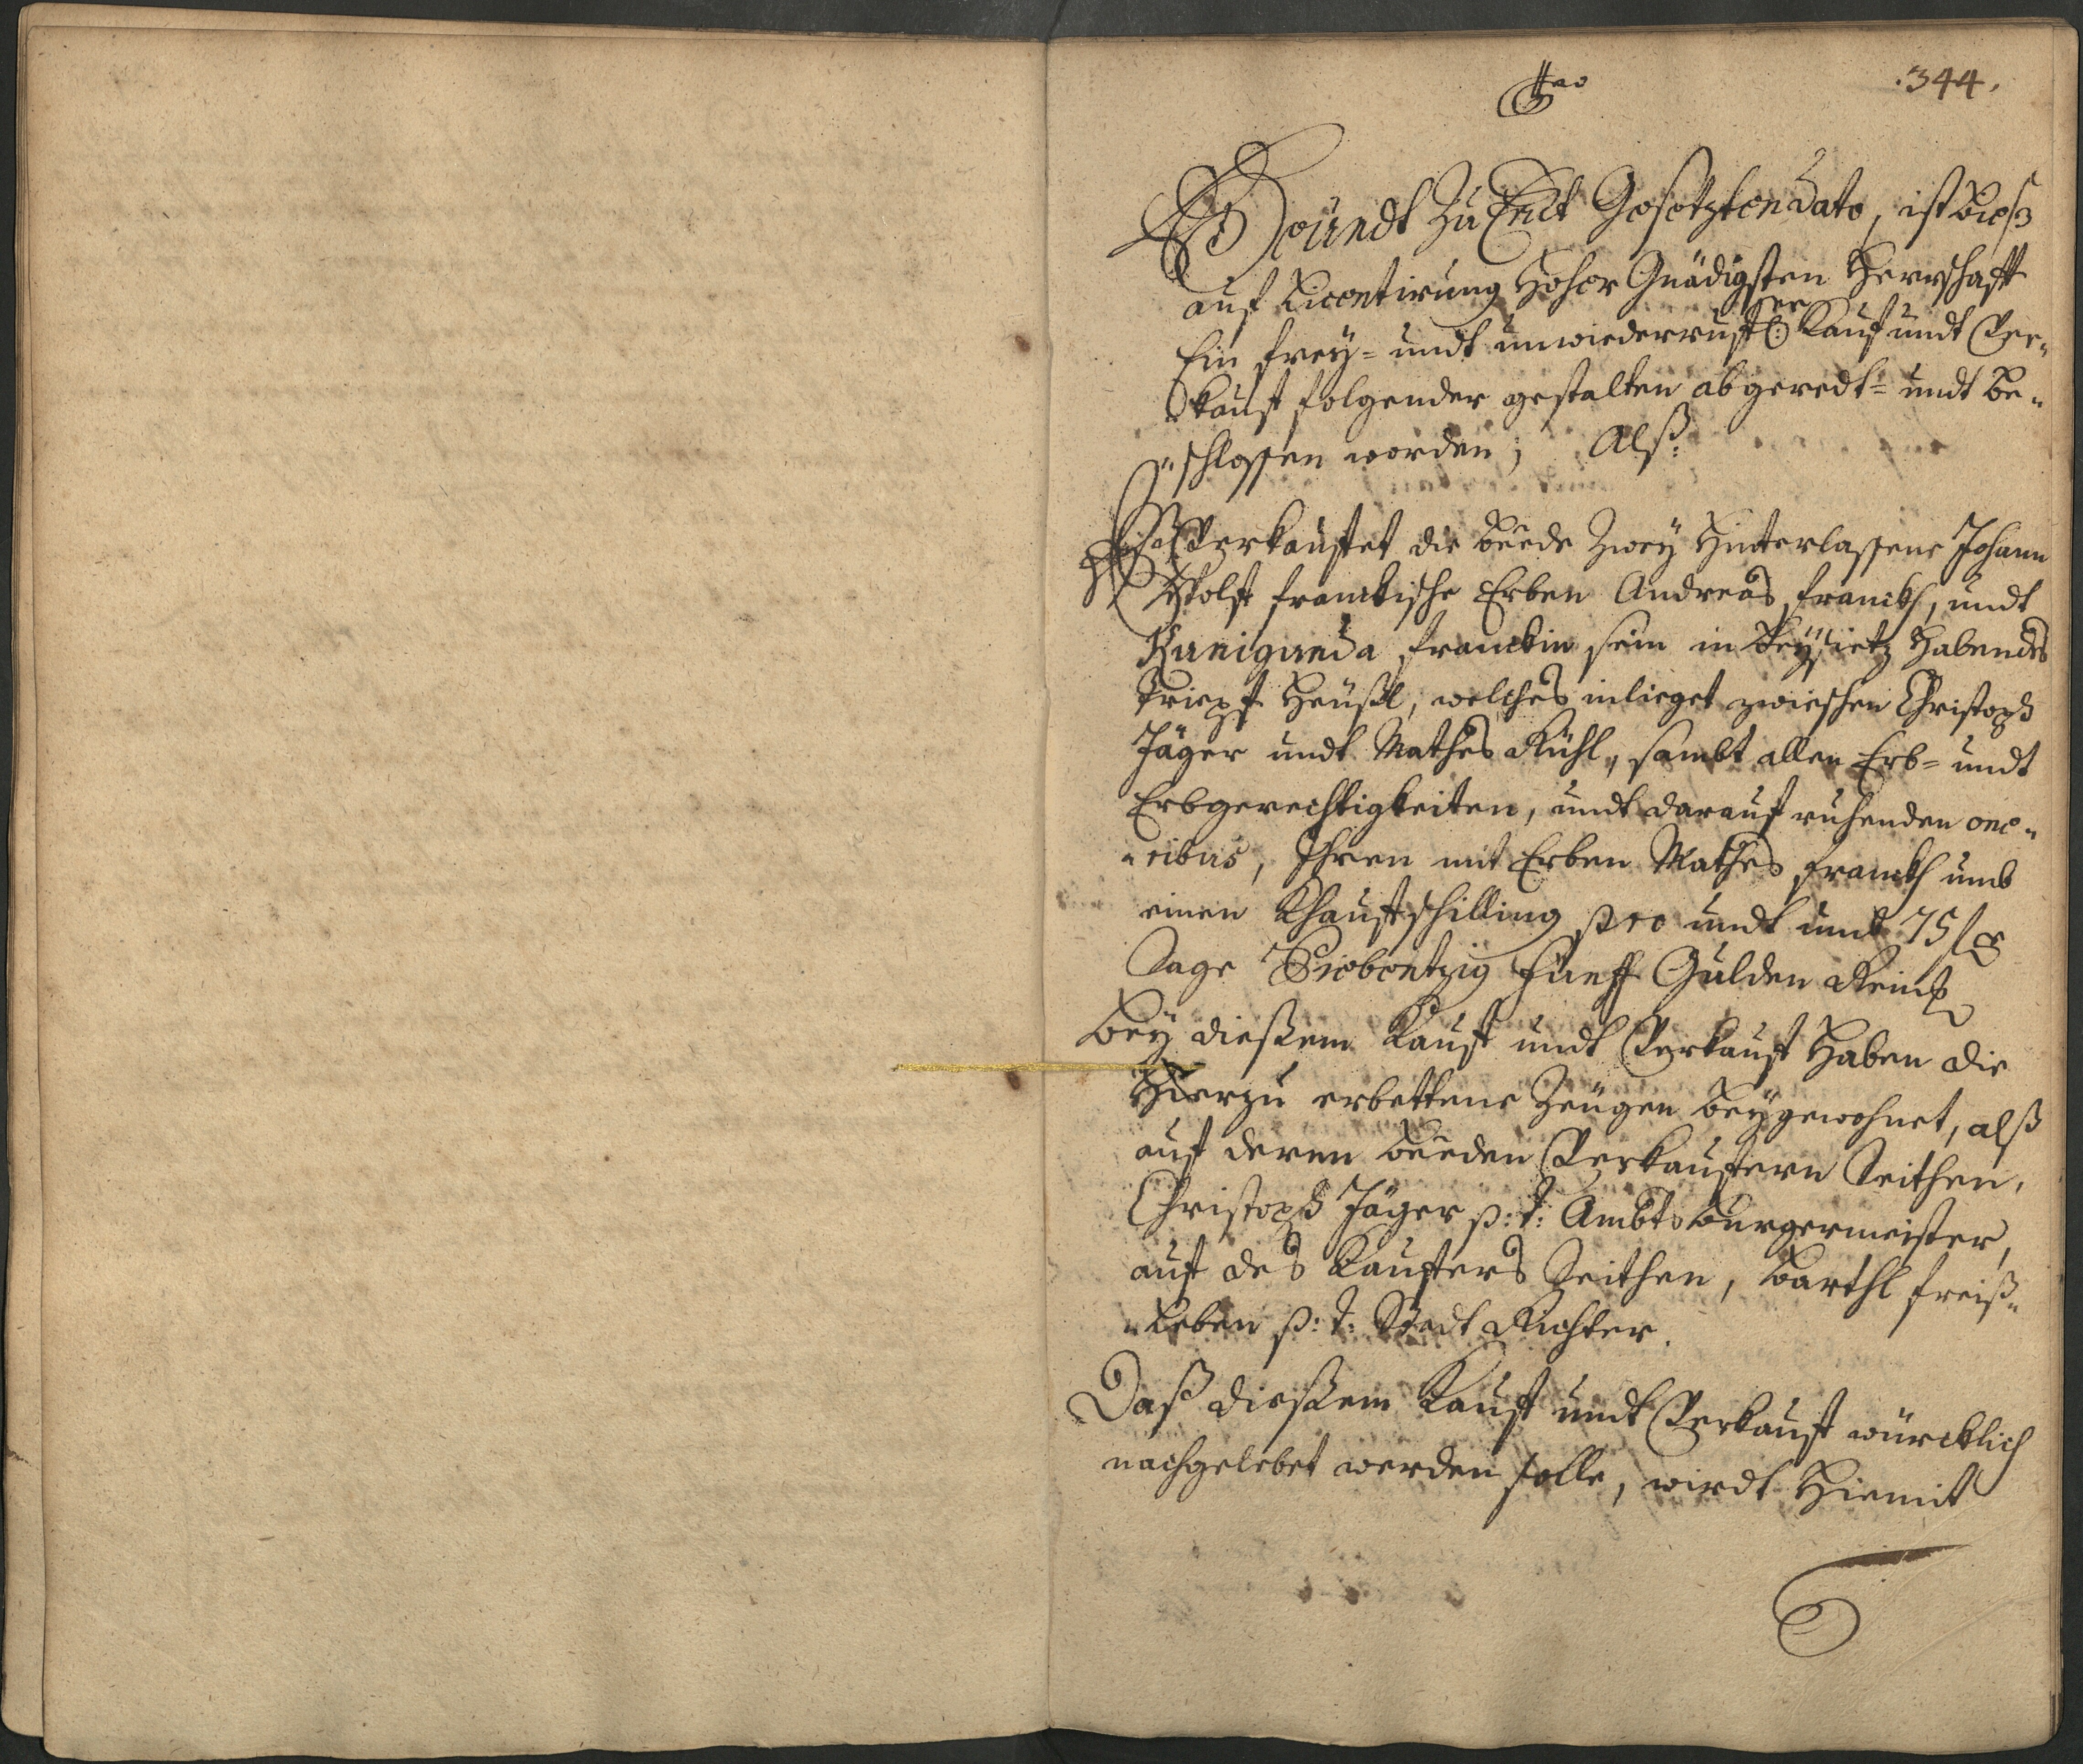 .344.
Heündt zu Endt Gesetzten Dato, ist bieß
auf Licentirung Hoher Gnädigsten Herrschafft
Ein frey= undt unwiederrufl: er Kauf undt Ver„
kauft folgender gestalten abgeredt= undt be„
„schlossen worden; Alß:
Verkauftet die beede Zwey Hinterlassene Johann
Wolff franckische Erben Andreas franckh, undt
Kunigunda franckin sein in besietz Habendes
Heüßl, welches inlieget zwieschen Christoph
Jäger undt Mathes Rühl, sambt allen Erb= undt
Erbgerechtigkeiten, undt darauf ruhenden one„
„ribus, Ihren mit Erben Mathes franckh umb
einen Khaufschilling pro undt umb 75 f
Sage Siebentzig fünff Gulden Reinl
Bey dießem Kauf undt Verkauf Haben die
Hierzu erbettene Zeügen beygewohnet, alß
auf deren beeden Verkaufern Seithen,
Christoph Jäger p: t: Ambts burgermeister,
auf des Kaufers Seithen, Barthl freiß„
„leben p: t: Stadt Richter.
Daß dießem Kauf undt Verkauf würcklich
nachgelebet werden solle, wirdt Hiemit